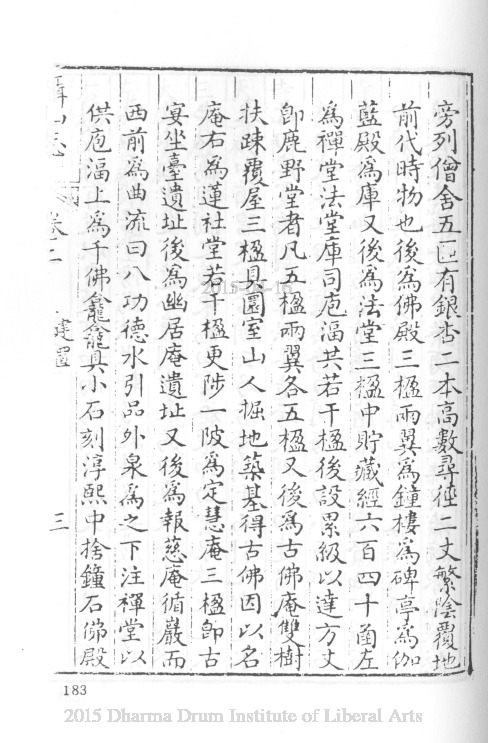 旁列僧舍五區有銀杏二本高數尋徑二丈繁陰覆地
前代時物也後為佛殿三楹兩翼為鐘樓為碑亭為伽
藍殿為庫又後為法堂三楹中貯藏經六百四十函左
為禪堂法堂庫司庖湢共若干楹後設累級以達方丈
卽鹿野堂者凡五楹兩翼各五楹又後為古佛庵雙樹
扶踈覆屋三楹具圜室山人掘地築基得古佛因以名
庵右為蓮社堂若干楹更陟一陂為定慧庵三楹卽古
宴坐臺遺址後為幽居庵遺址又後為報慈庵循巖而
西前為曲流曰八功德水引品外泉為之下注禪堂以
供庖湢上為千佛龕龕具小石刻淳熙中捨鐘石佛殿
卷二 建置 三
183
2015 Dharma Drum Institute of Liberal Arts